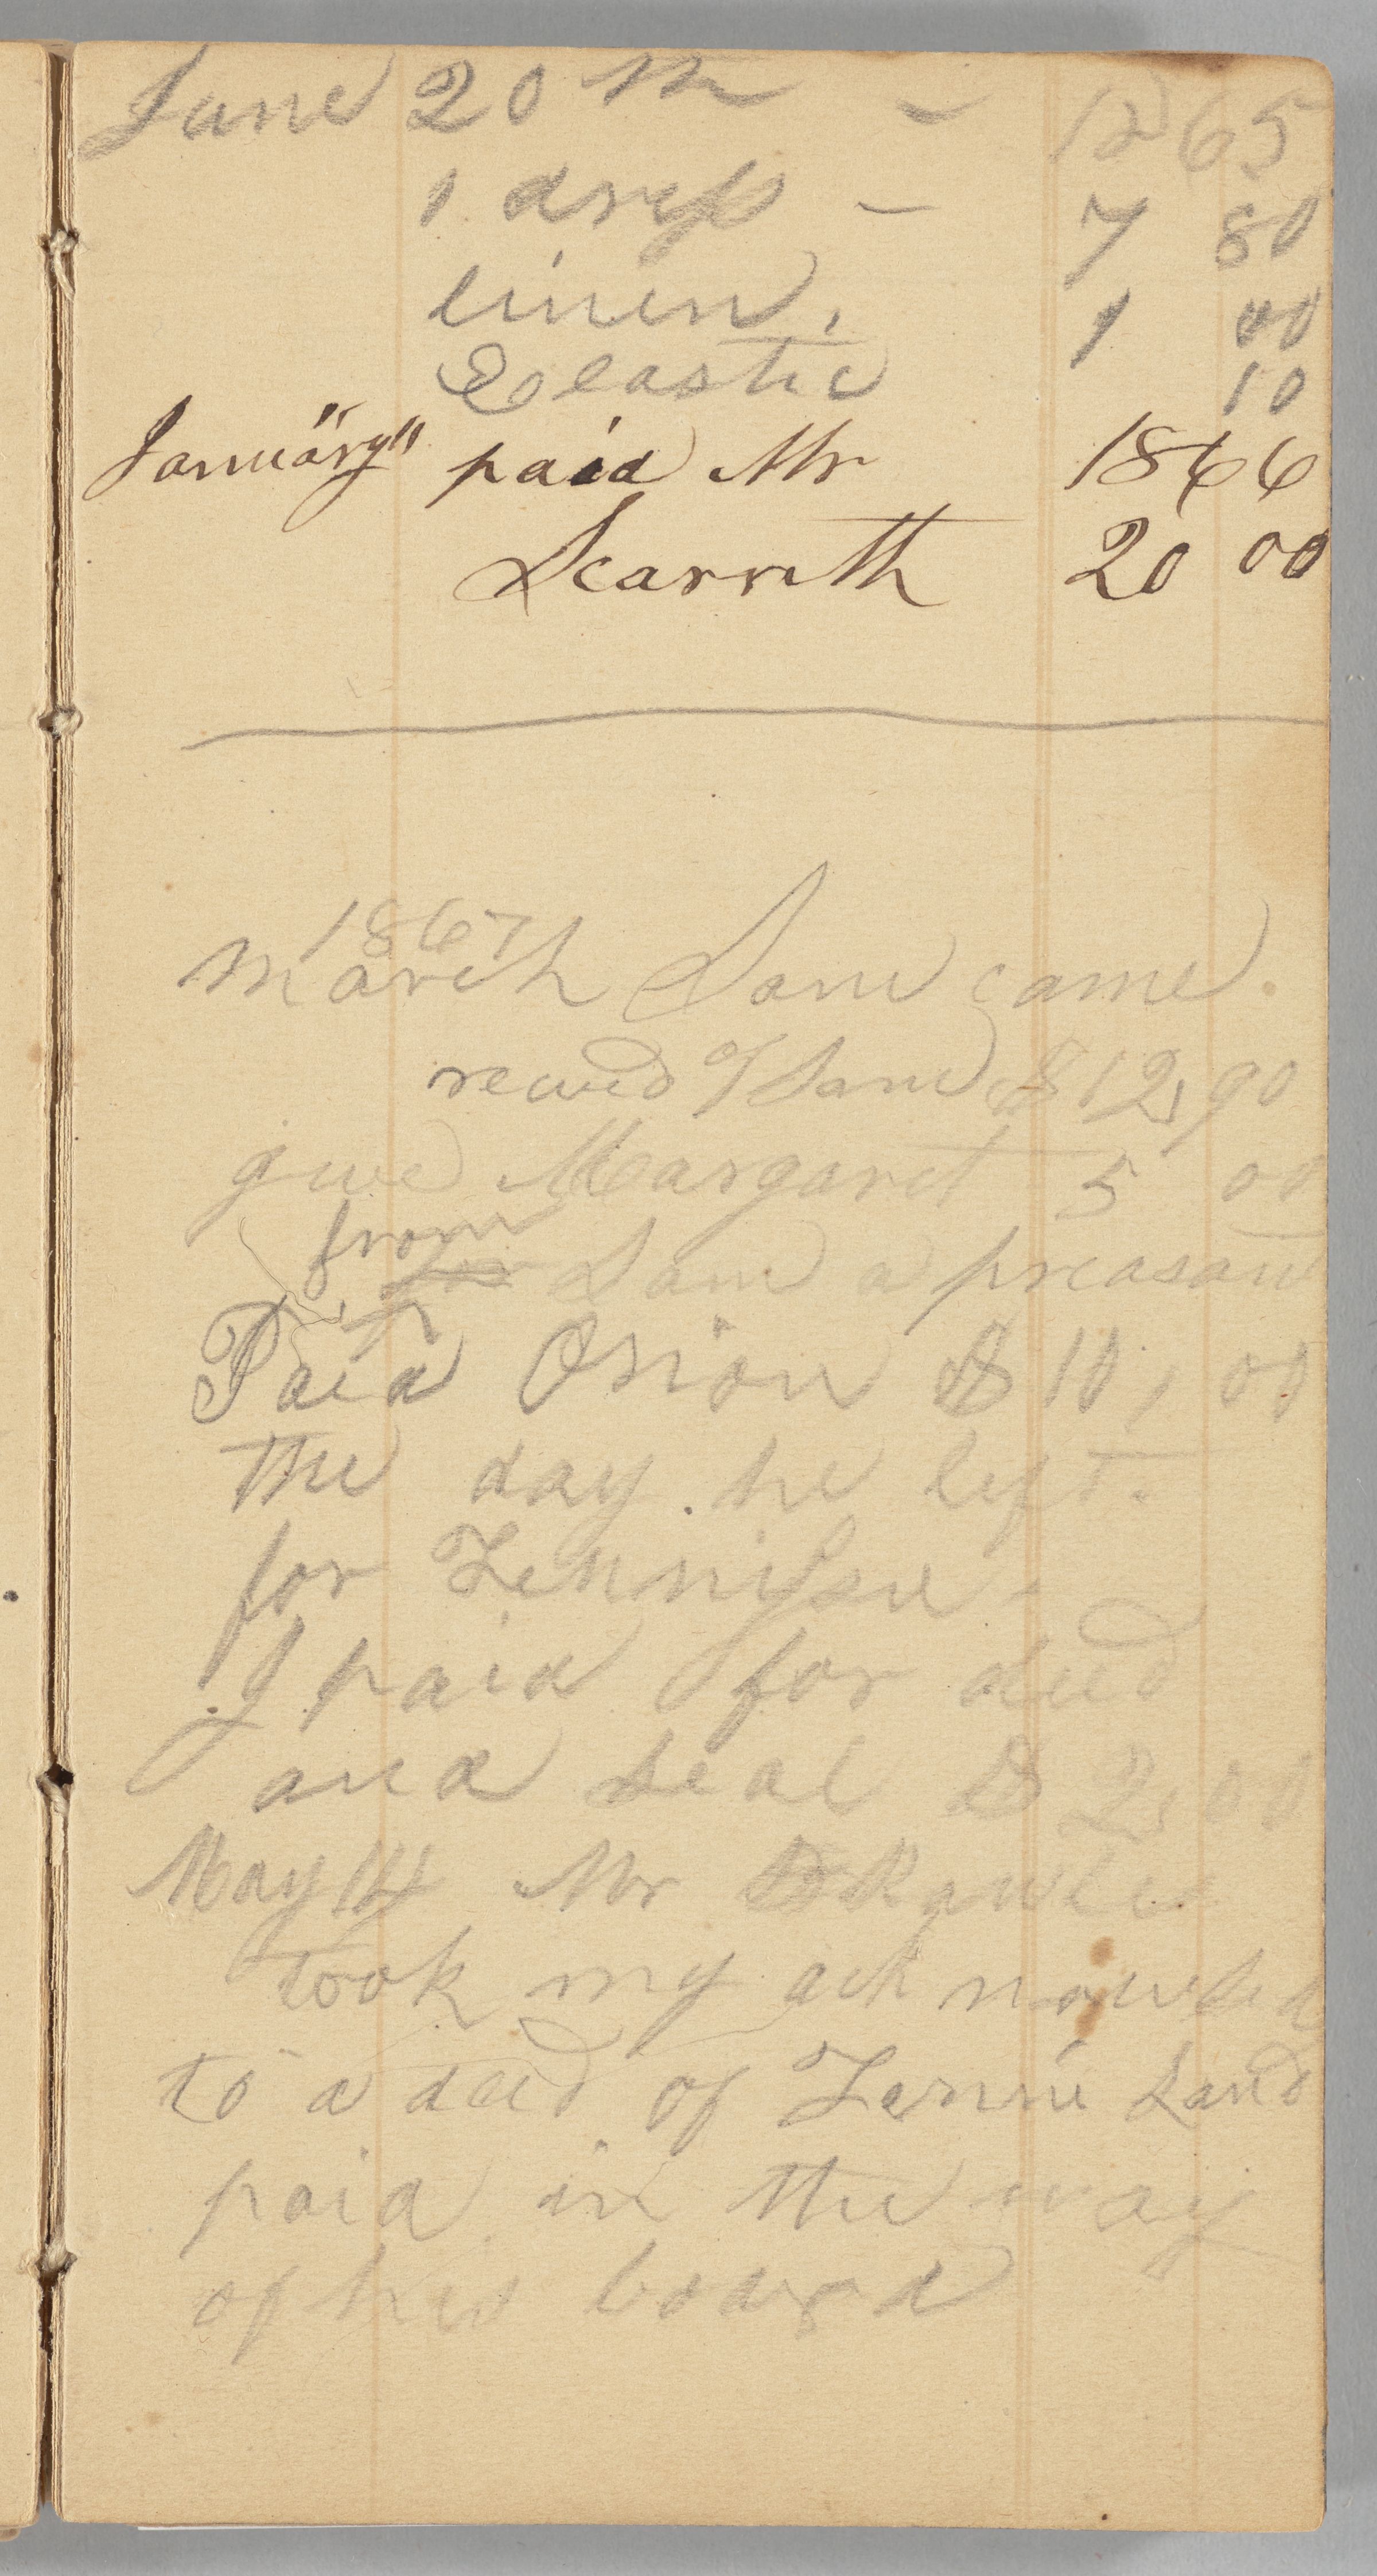 June 20th - 1265
1 dress - 7 80
linen, 1 00
Eelastic 10
January" paid Mr 1866
Scarritt 20 00
1867
march Sam came.
recived of Sam $12,90
give Margaret 5 00
from
for Sam a preasant
Paid Orion $10,00
the day he left.
for Tennisee
I paid for deed
and seal $2,00
May 14 Mr
took my acknowled
to a deed of Tenne Land
paid in the way
of his board